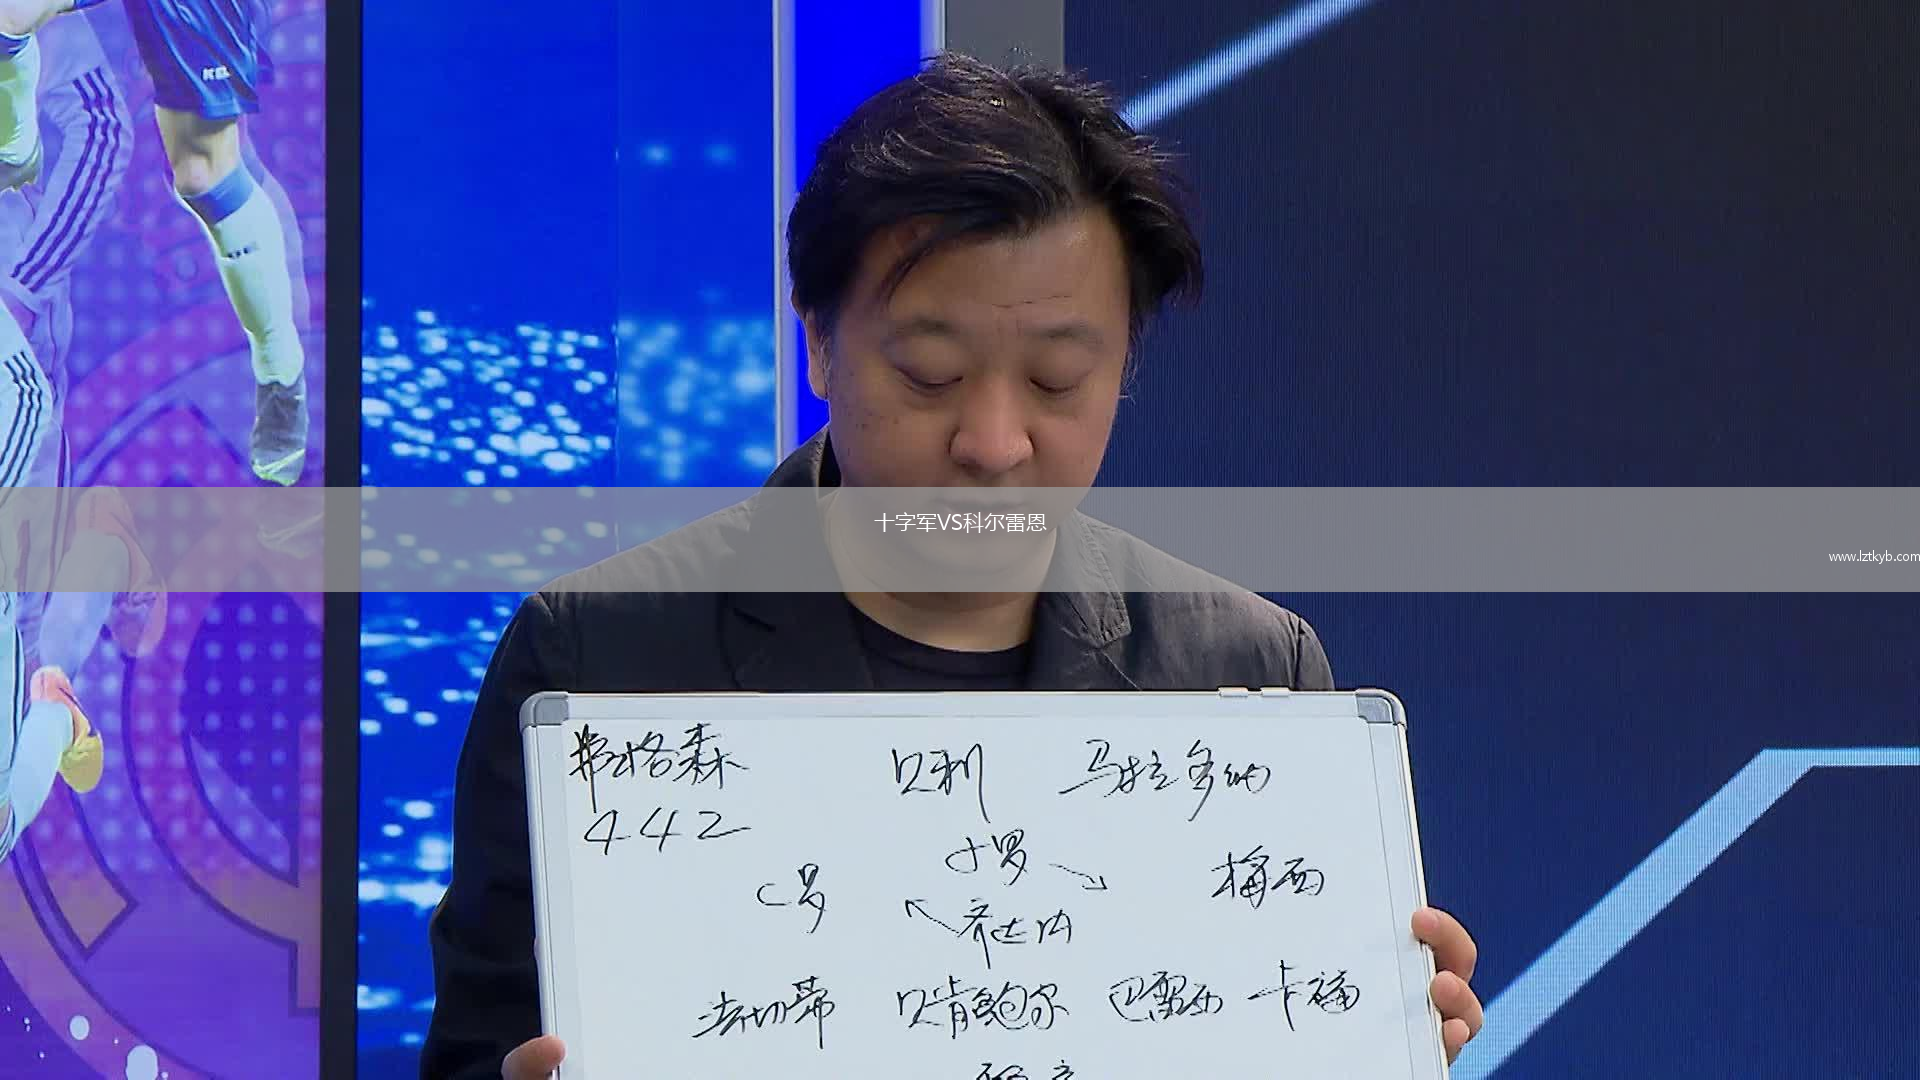 十字军VS科尔雷恩
www.lztkyb.com
弗格森 贝利 马拉多纳
442
小罗
C罗 梅西
齐达内
法切蒂 贝肯鲍尔 巴雷西 卡福